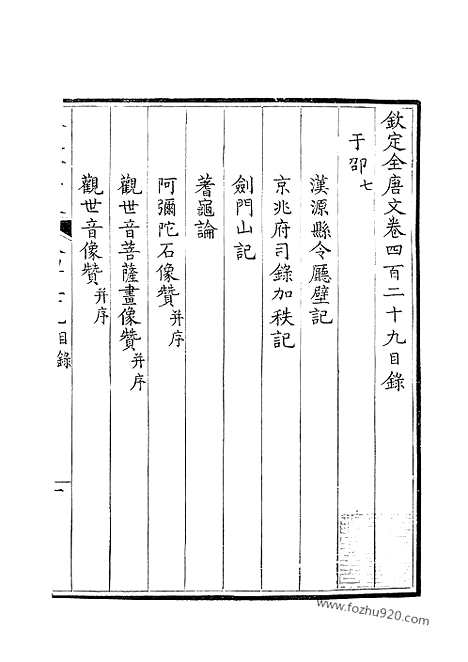 欽定全唐文卷四百二十九目錄
于邵 七
漢源縣令廳壁記
京兆府司錄加秩記
劍門山記
蓍龜論
阿彌陀石像贊 并序
觀世音菩薩畫像贊 并序
觀世音像贊 并序
目錄
一
www.fozhu920.com